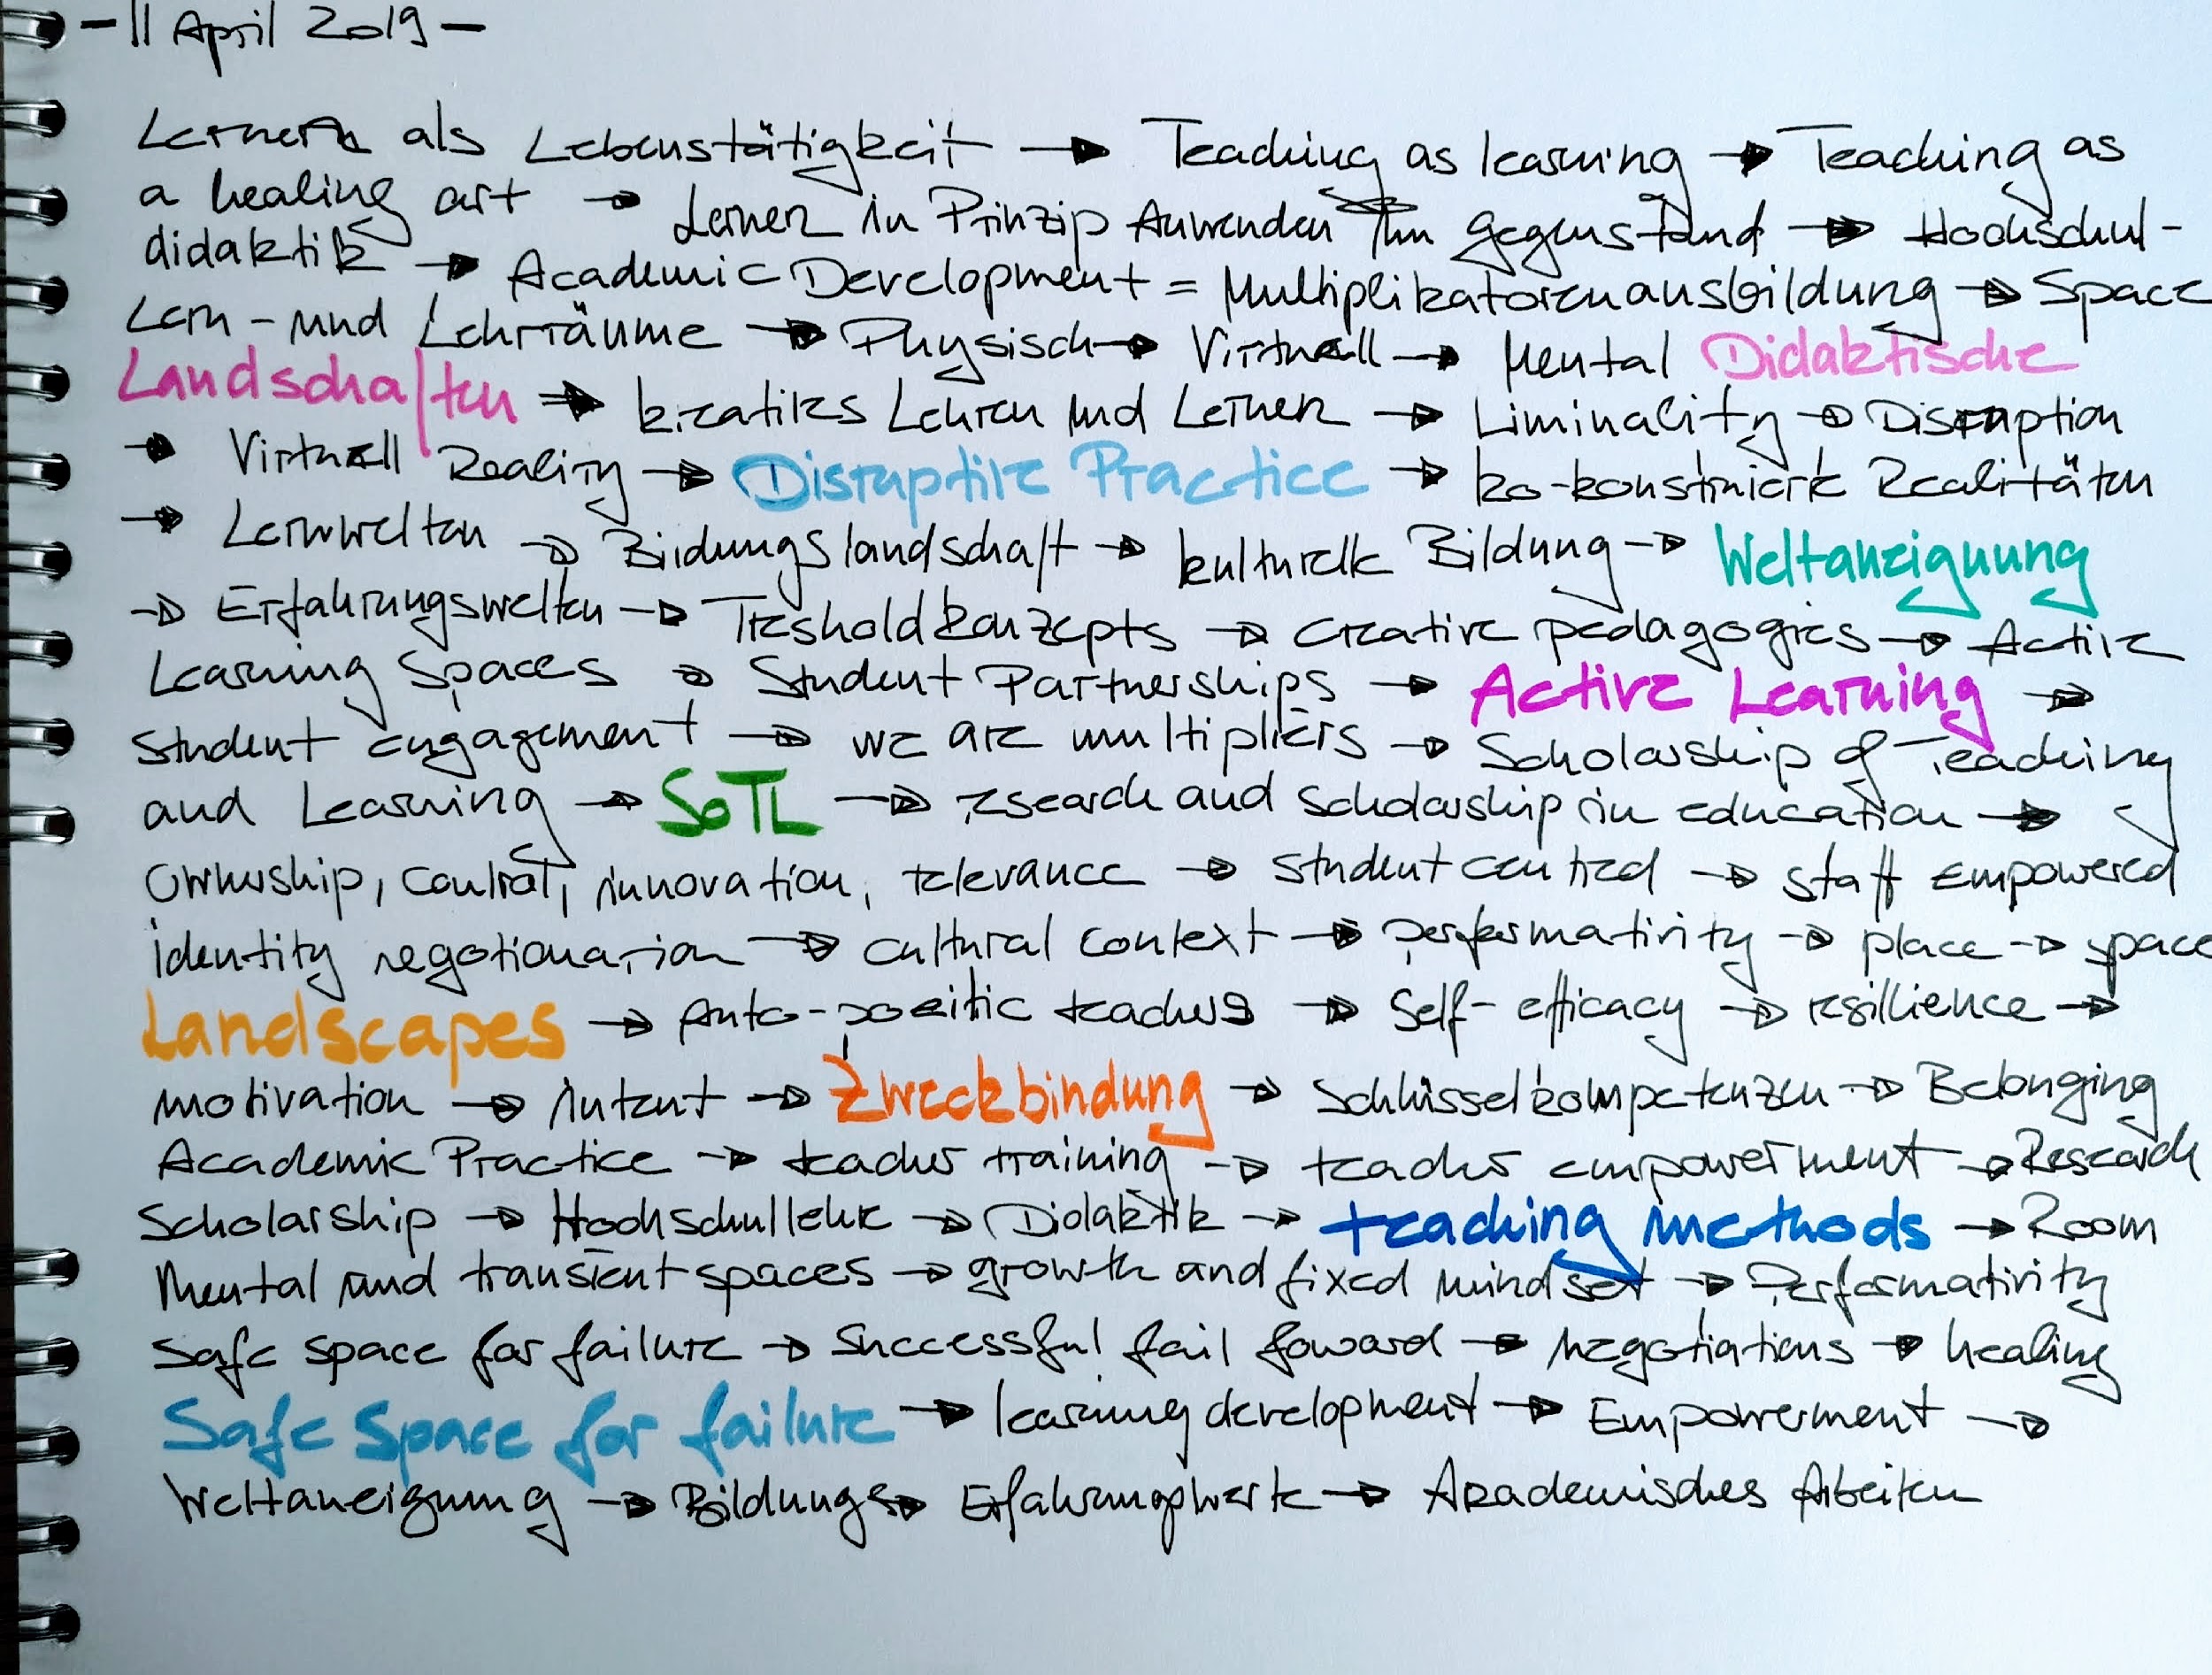 - 11 April 2019 -
Lernen als Lebenstätigkeit → Teaching as learning → Teaching as
a healing art → Lernen in Prinzip Anwenden Gegenstand → Hochschul-
didaktik → Academic Development = Multiplikatorenausbildung → Space
Lern- und Lehrräume → Physisch → Virtuell → Mental Didaktische
Landschaften → kreatives Lehren und Lernen → Liminality → Disruption
→ Virtuell Reality → Disruptive Practice → ko-konstruierte Realitäten
→ Lernwelten → Bildungslandschaft → kulturelle Bildung → Weltaneignung
→ Erfahrungswelten → Treshold konzepts → creative pedagogies → Active
Learning Spaces → Student Partnerships → Active Learning →
Student engagement → we are multipliers → Scholarship of Teaching
and Learning → SoTL → research and scholarship in education →
Ownership, control, innovation, relevance → student centred → staff empowered
identity negotionarion → cultural context → performativity → place → space
Landscapes → Auto-poeitic teachers → Self-efficacy → resillience →
motivation → intent → Zweckbindung → Schlüsselkompetenzen → Belonging
Academic Practice → teacher training → teacher empowerment → Research
Scholarship → Hochschullehre → Didaktik → teaching methods → Room
Mental und transient spaces → growth and fixed mindset → Performativity
Safe space for failure → Successful fail foward → negotiations → healing
Safe Space for failure → learning development → Empowerment →
Weltaneignung → Bildung → Erfahrungswerte → Akademisches Arbeiten